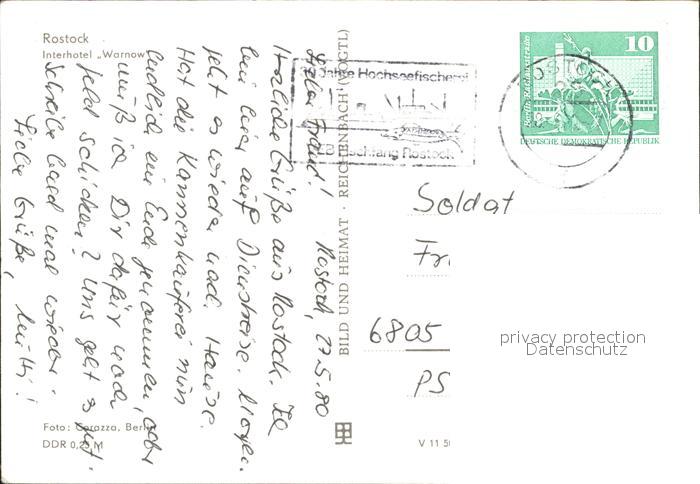 Rostock
Interhotel „Warnow"
Rostock, 27.5.80
Herzliche Grüße aus Rostock. Ich
bin hier auf Dienstreise. Morgen
geht es wieder nach Hause.
Hat die Kannenkauferei nun
endlich ein Ende genommen, oder
muß ich Dir dafür noch
Geld schicken? Uns geht es gut.
Schreibe bald mal wieder.
Liebe Grüße, Mutti!
Foto: Corazza, Berlin
DDR 0,25 M
BILD UND HEIMAT · REICHENBACH (VOGTL)
V 11 50
Jahre Hochseefischerei
Fischfang Rostock
10
Berlin, Rathausstraße
DEUTSCHE DEMOKRATISCHE REPUBLIK
ROSTOCK
Soldat
6805
PS
privacy protection
Datenschutz